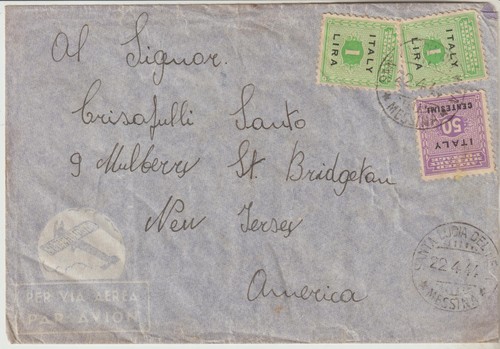 Al Signor.
Crisafulli Santo
9 Mulberry St. Bridgetan
New Jersey
America
ITALY
1
LIRA
ITALY
1
LIRA
ITALY
50
CENTESIMI
MESSINA
22.4.44
MESSINA
PER VIA AEREA
PAR AVION